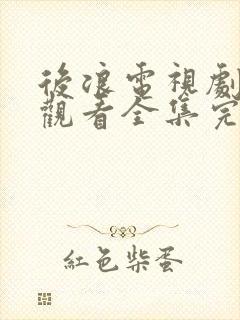 後浪電視劇
觀看全集完
紅色柴蛋